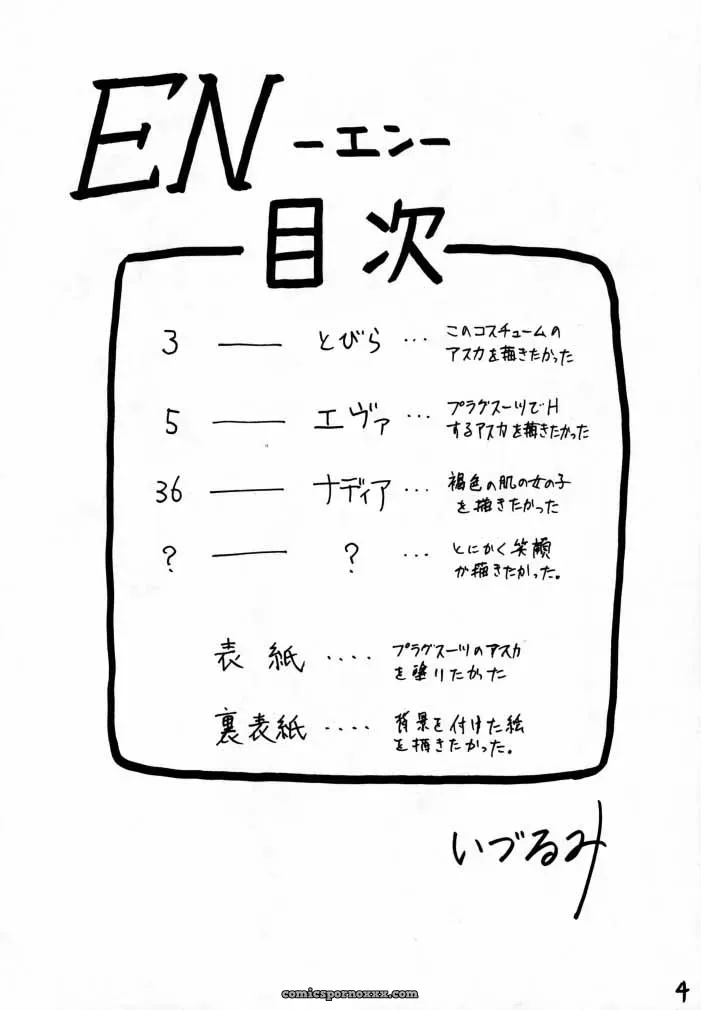 EN
ーエンー
目次
3 ― とびら ‥‥ このコスチュームの
アスカを描きたかった
5 ― エヴァ ‥‥ プラグスーツでH
するアスカを描きたかった
36 ― ナディア ‥‥ 褐色の肌の女の子
を描きたかった
? ― ? ‥‥ とにかく笑顔
が描きたかった。
表紙 ‥‥ プラグスーツのアスカ
を塗りたかった
裏表紙 ‥‥ 背景を付けた絵
を描きたかった。
いづるみ
4
comicspornoxxx.com